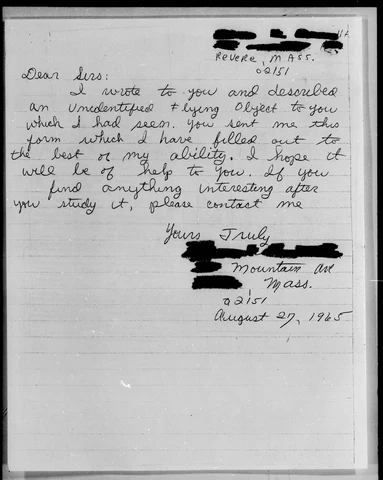 Revere, Mass.
02151
Dear Sirs:
I wrote to you and described
an Unidentified Flying Object to you
which I had seen. You sent me this
form which I have filled out to
the best of my ability. I hope it
will be of help to you. If you
find anything interesting after
you study it, please contact me
Yours Truly
Mountain Ave
Mass.
02151
August 27, 1965